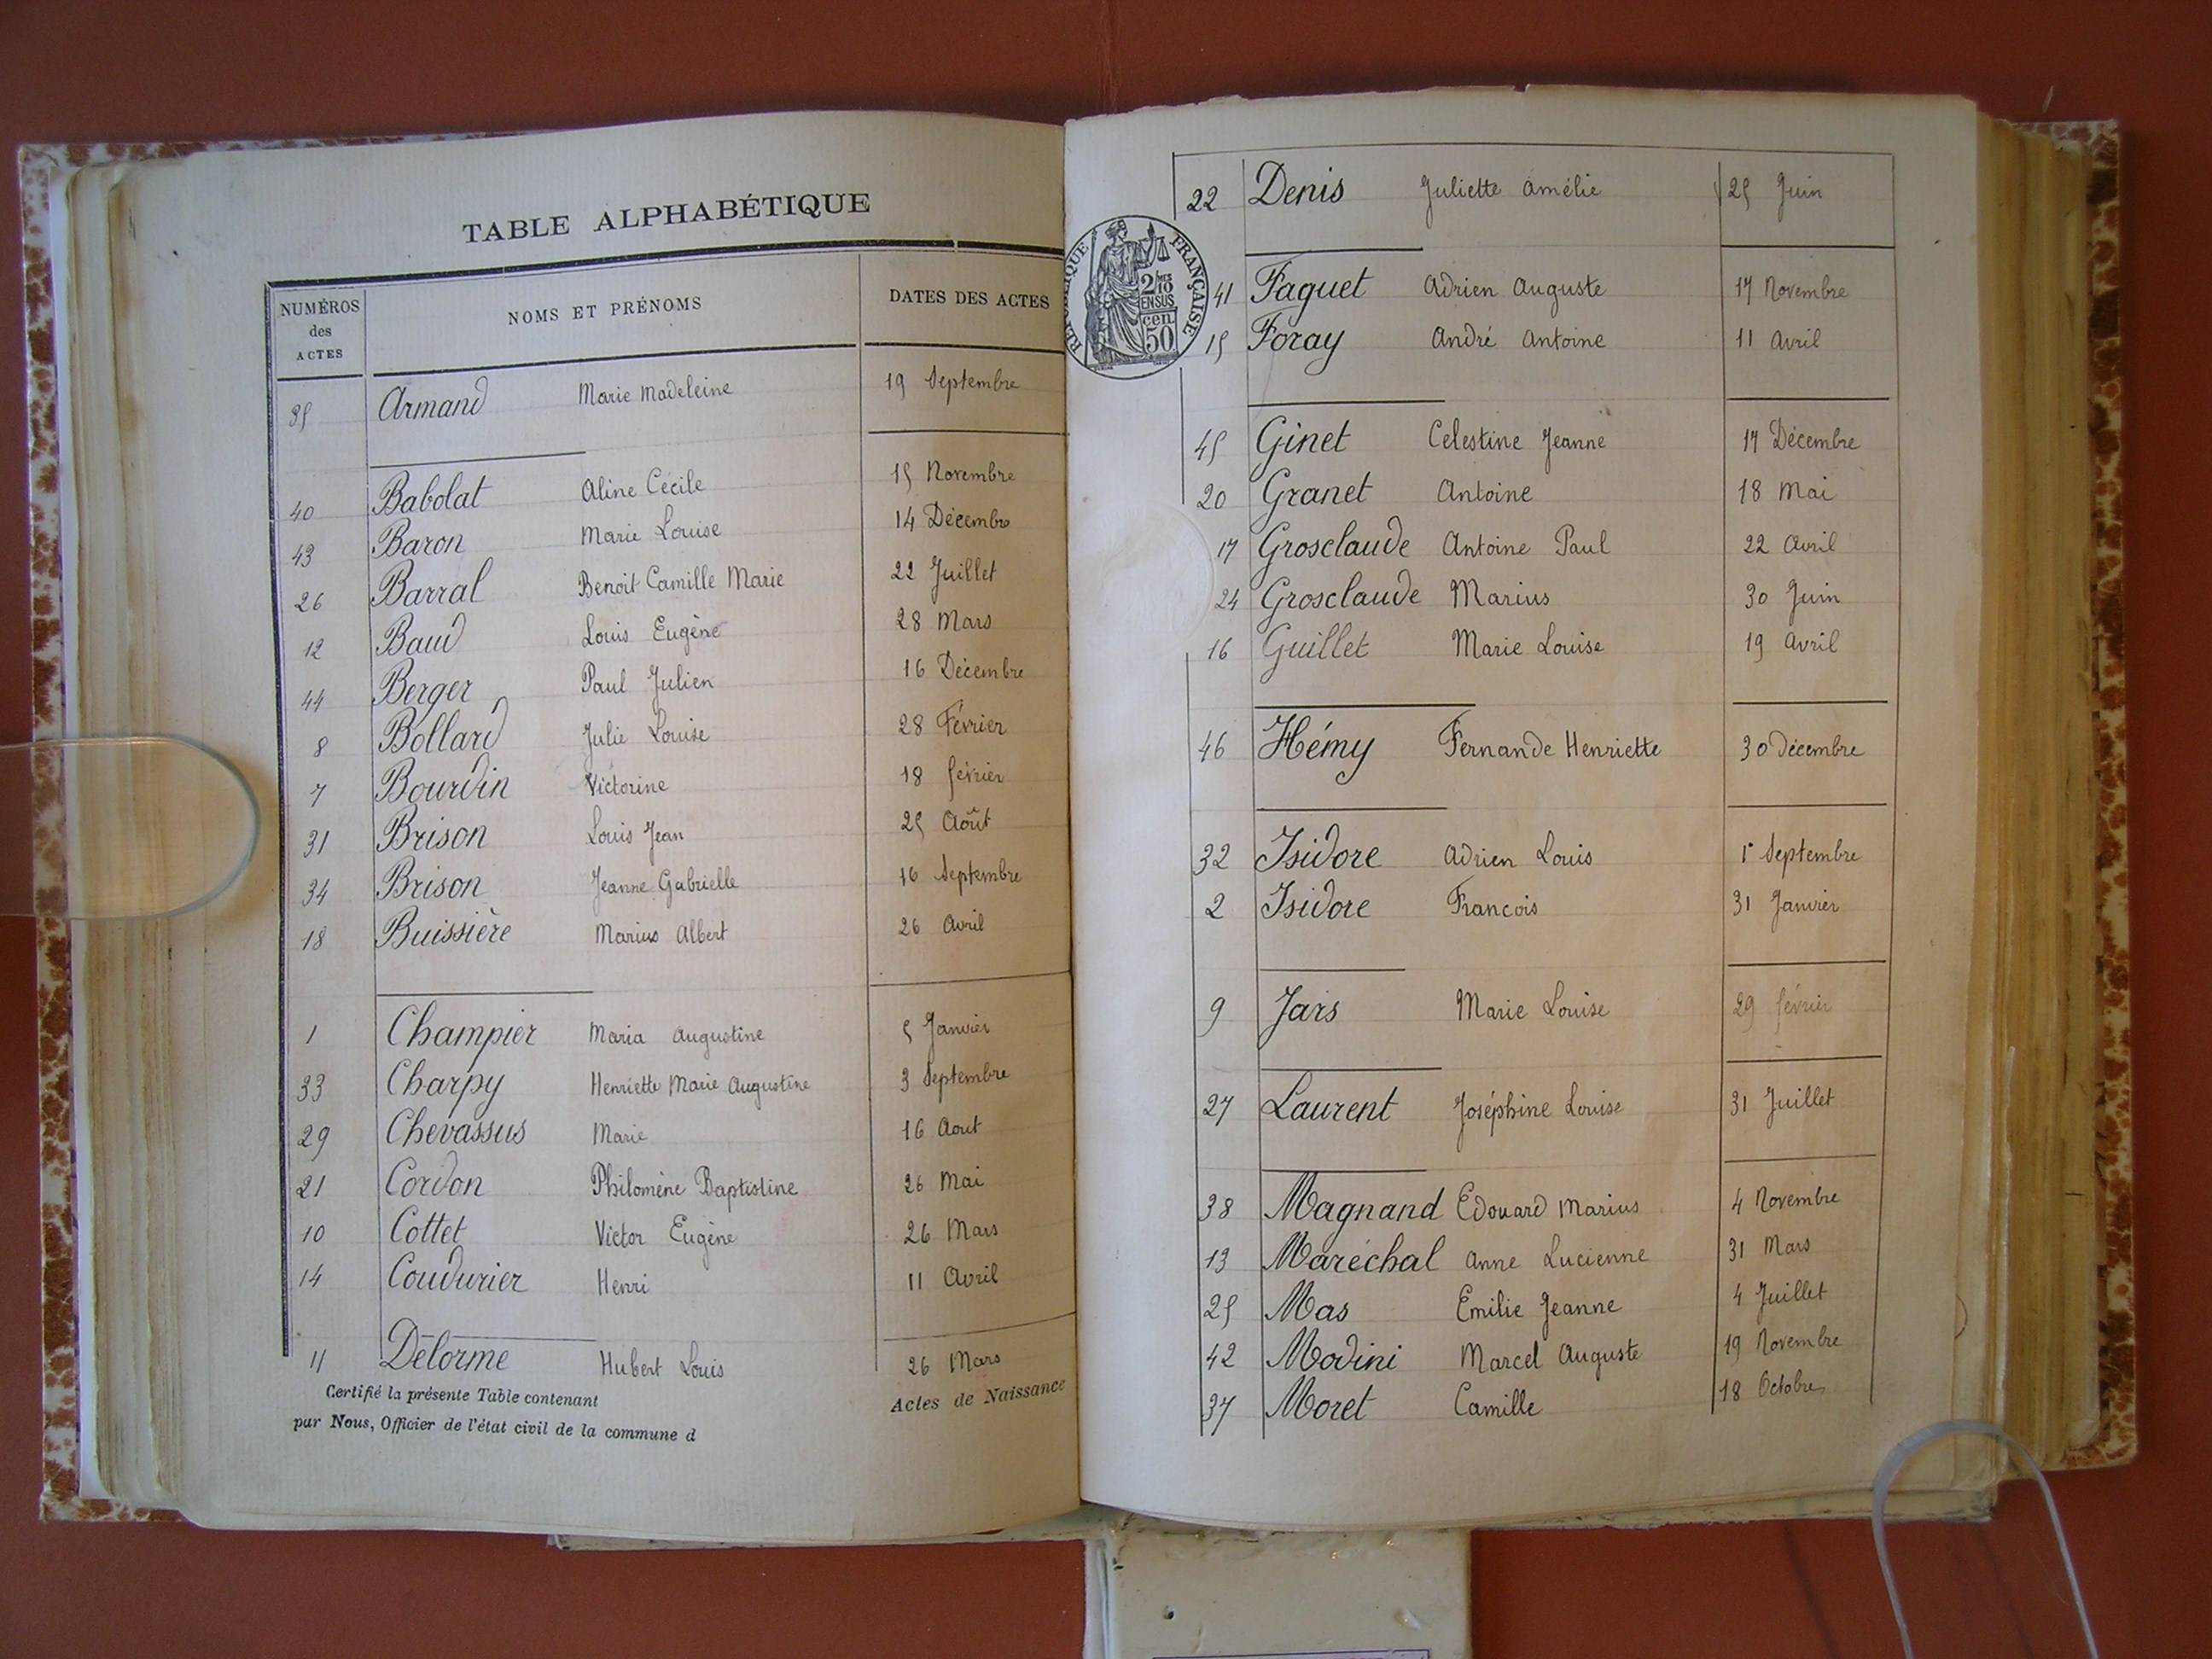 TABLE ALPHABÉTIQUE
NUMÉROS des ACTES NOMS ET PRÉNOMS DATES DES ACTES
35 Armand Marie Madeleine 19 Septembre
40 Babolat Aline Cécile 15 Novembre
43 Baron Marie Louise 14 Décembre
26 Barral Benoit Camille Marie 22 Juillet
12 Baud Louis Eugène 28 Mars
44 Berger Paul Julien 16 Décembre
8 Bollard Julie Louise 28 Février
7 Bourdin Victorine 18 février
31 Brison Louis Jean 25 Août
34 Brison Jeanne Gabrielle 16 Septembre
18 Buissière Marius Albert 26 Avril
1 Champier Maria Augustine 5 Janvier
33 Charpy Henriette Marie Augustine 3 Septembre
29 Chevassus Marie 16 Aout
21 Cordon Philomène Baptistine 26 Mai
10 Cottet Victor Eugène 26 Mars
14 Coudurier Henri 11 Avril
11 Delorme Hubert Louis 26 Mars
Certifié la présente Table contenant Actes de Naissance
par Nous, Officier de l'état civil de la commune d
22 Denis Juliette Amélie 25 Juin
RÉPUBLIQUE FRANÇAISE
2/10 MES
EN SUS
50 cen
41 Faguet Adrien Auguste 17 Novembre
15 Foray André Antoine 11 Avril
45 Ginet Celestine Jeanne 17 Décembre
20 Granet Antoine 18 Mai
17 Grosclaude Antoine Paul 22 Avril
24 Grosclaude Marius 30 Juin
16 Guillet Marie Louise 19 Avril
46 Hémy Fernande Henriette 30 Décembre
32 Isidore Adrien Louis 1r Septembre
2 Isidore Francois 31 Janvier
9 Jars Marie Louise 29 février
27 Laurent Joséphine Louise 31 Juillet
38 Magnand Edouard Marius 4 Novembre
13 Maréchal Anne Lucienne 31 Mars
25 Mas Emilie Jeanne 4 Juillet
42 Modini Marcel Auguste 19 Novembre
37 Moret Camille 18 Octobre